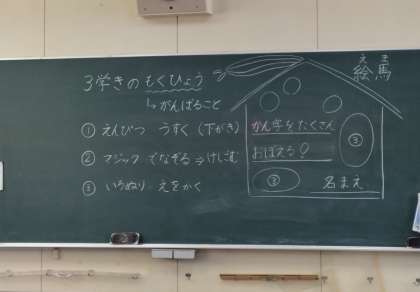 3学きのもくひょう
↳がんばること
① えんぴつ うすく (下がき)
② マジック でなぞる → けしごむ
③ いろぬり・えをかく
絵馬
え ま
かん字をたくさん
おぼえる!
③
③
名まえ